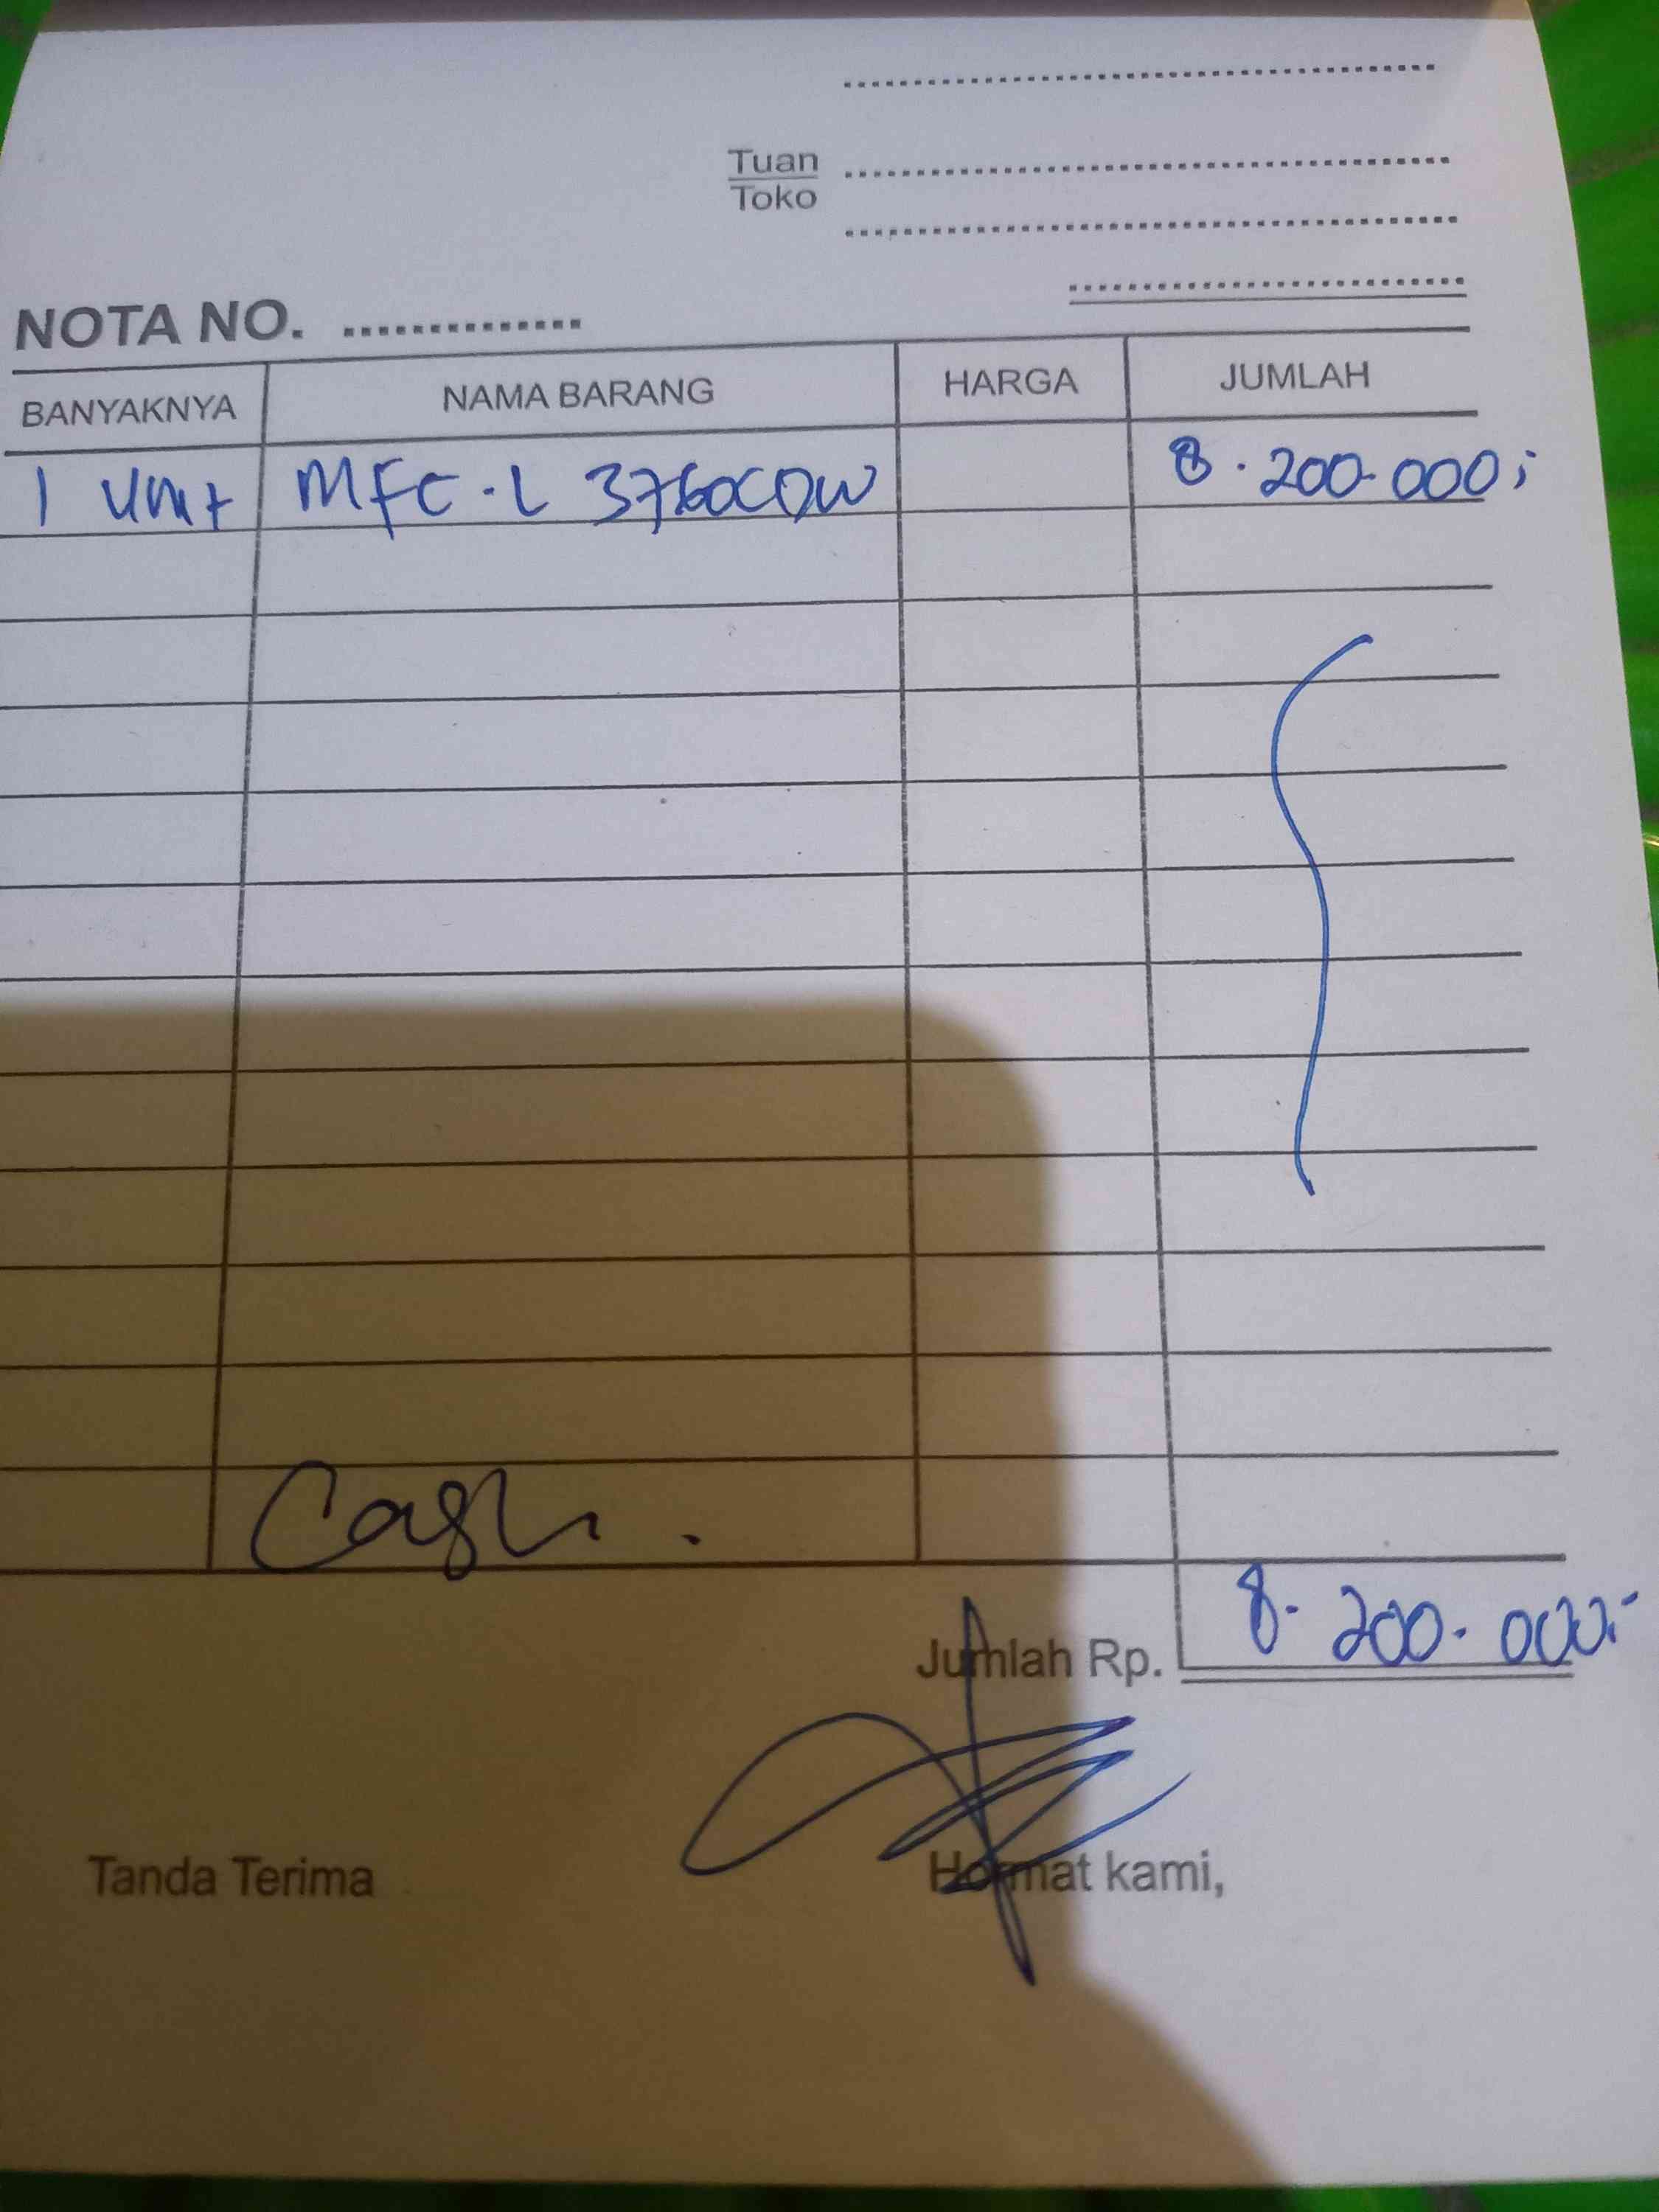 Tuan
Toko
NOTA NO.
BANYAKNYA NAMA BARANG HARGA JUMLAH
1 Unit MFC-L 3760CDW 8.200.000,-
Cash.
Jumlah Rp. 8.200.000,-
Tanda Terima Hormat kami,